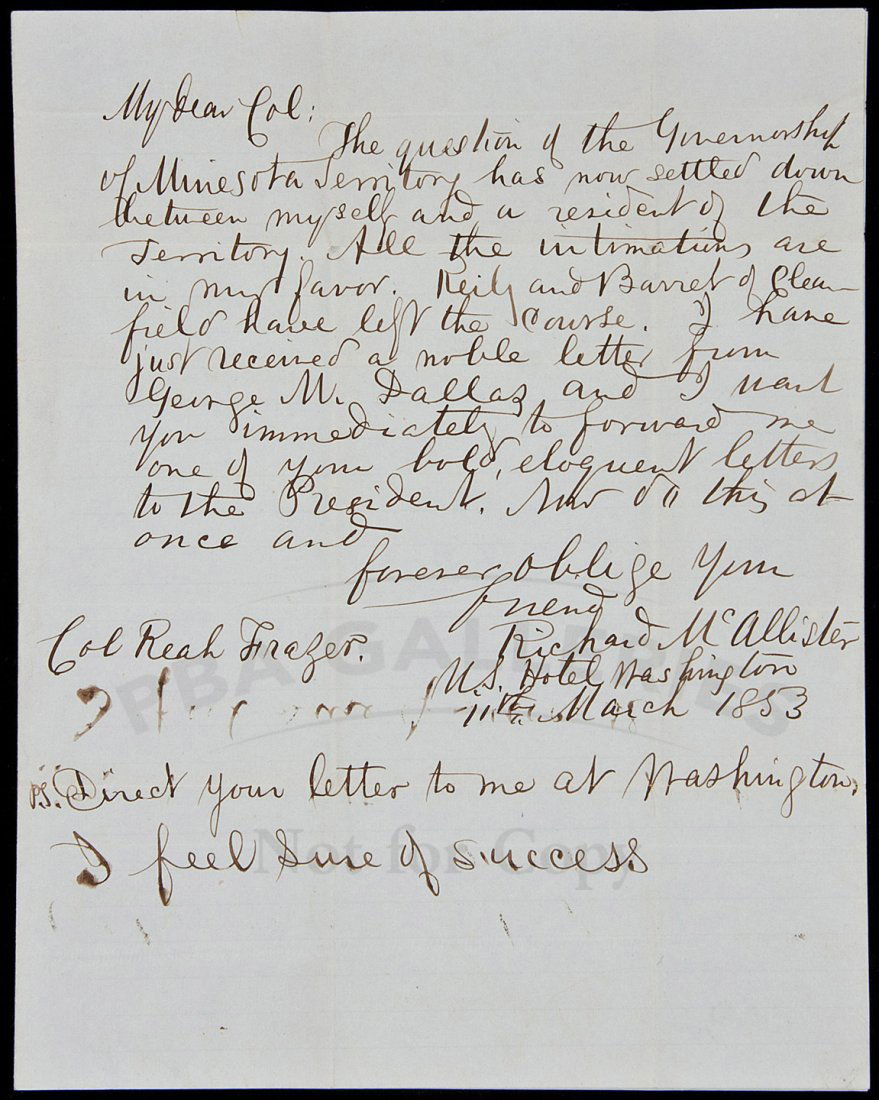 My Dear Col:
The question of the Governorship
of Minesota Territory has now settled down
between myself and a resident of the
Territory. All the intimations are
in my favor. Reily and Barret of Clear-
field have left the course. I have
just received a noble letter from
George M. Dallas and I want
you immediately to forward me
one of your bold, eloquent letters
to the President. Now do this at
once and
forever oblige your
friend
Richard McAllister
Col Reah Frazer.
U.S. Hotel Washington
11th March 1853
PBA GALLERIES
P.S. Direct your letter to me at Washington.
I feel sure of success
Not for Copy